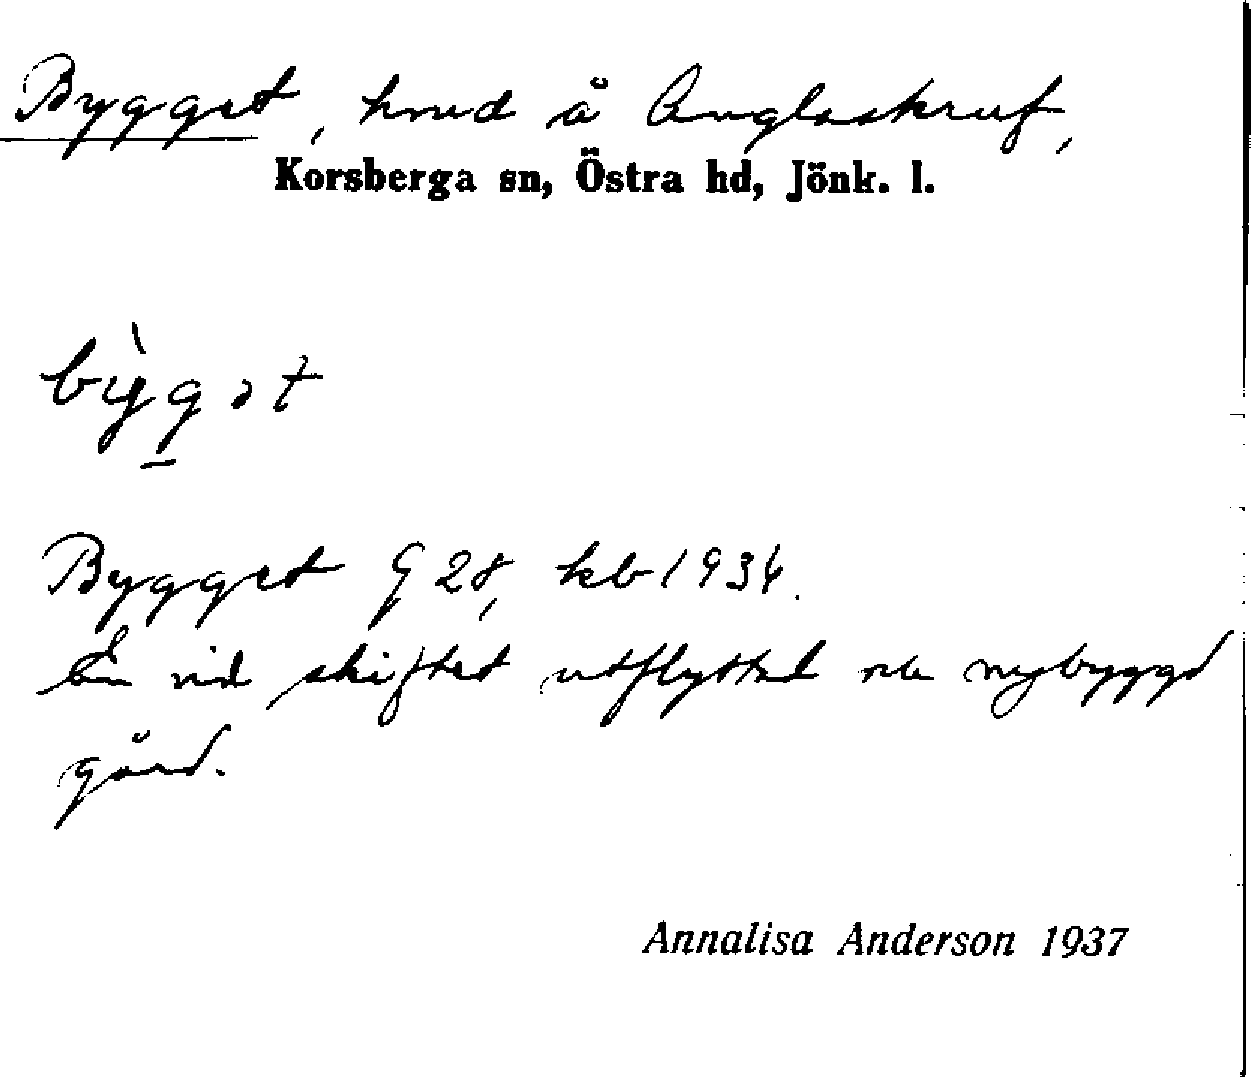 Bygget, hmd å Anglaskruf,
Korsberga sn, Östra hd, Jönk. l.
bỳgət
Bygget G 28, kb 1934.
En vid skiftet utflyttad nybyggd
gård.
Annalisa Anderson 1937